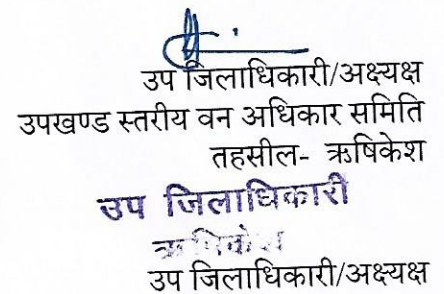 उप जिलाधिकारी/अक्ष्यक्ष
उपखण्ड स्तरीय वन अधिकार समिति
तहसील- ऋषिकेश
उप जिलाधिकारी
ऋषिकेश
उप जिलाधिकारी/अक्ष्यक्ष